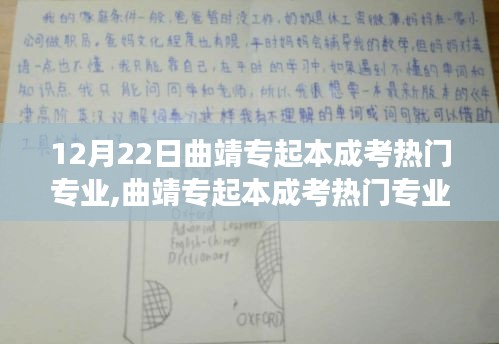 我的家庭条件一般,爸爸暂时没工作,奶奶退休工资微薄,妈妈在一家小
公司做职员。爸妈文化程度也有限,平时妈妈会辅导我的数学,但妈妈对英
语一点也不懂,我只能靠自己,在平时的学习中,如果遇到不懂的单词和
知识点我只能问同学和老师,所以我很想要一本最新版本的《牛
津高阶英汉双解词典》这样我有不理解的单词或词句就可以借助
12月22日曲靖专起本成考热门
专业,曲靖专起本成考热门专业
Oxford
Advanced Learner's
English-Chinese
Dictionary
OXFORD